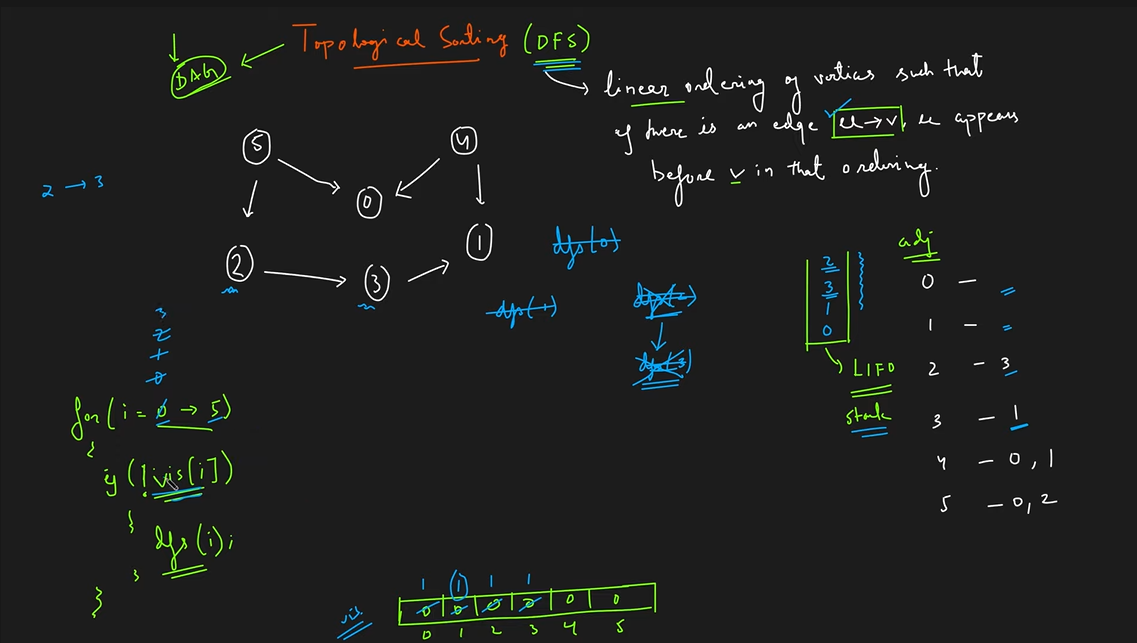 Topological Sorting (DFS)
DAG
linear ordering of vertices such that
if there is an edge u → v, u appears
before v in that ordering.
5
4
0
2 → 3
1
2
3
dfs(0)
dfs(1)
dfs(2)
dfs(3)
2
3
1
0
LIFO
stack
adj
0 -
1 -
2 - 3
3 - 1
4 - 0, 1
5 - 0, 2
3
2
1
0
for(i = 0 → 5)
{
if (!vis[i])
{
dfs(i);
}
}
vis
1 1 1 1
0 0 0 0 0 0
0 1 2 3 4 5